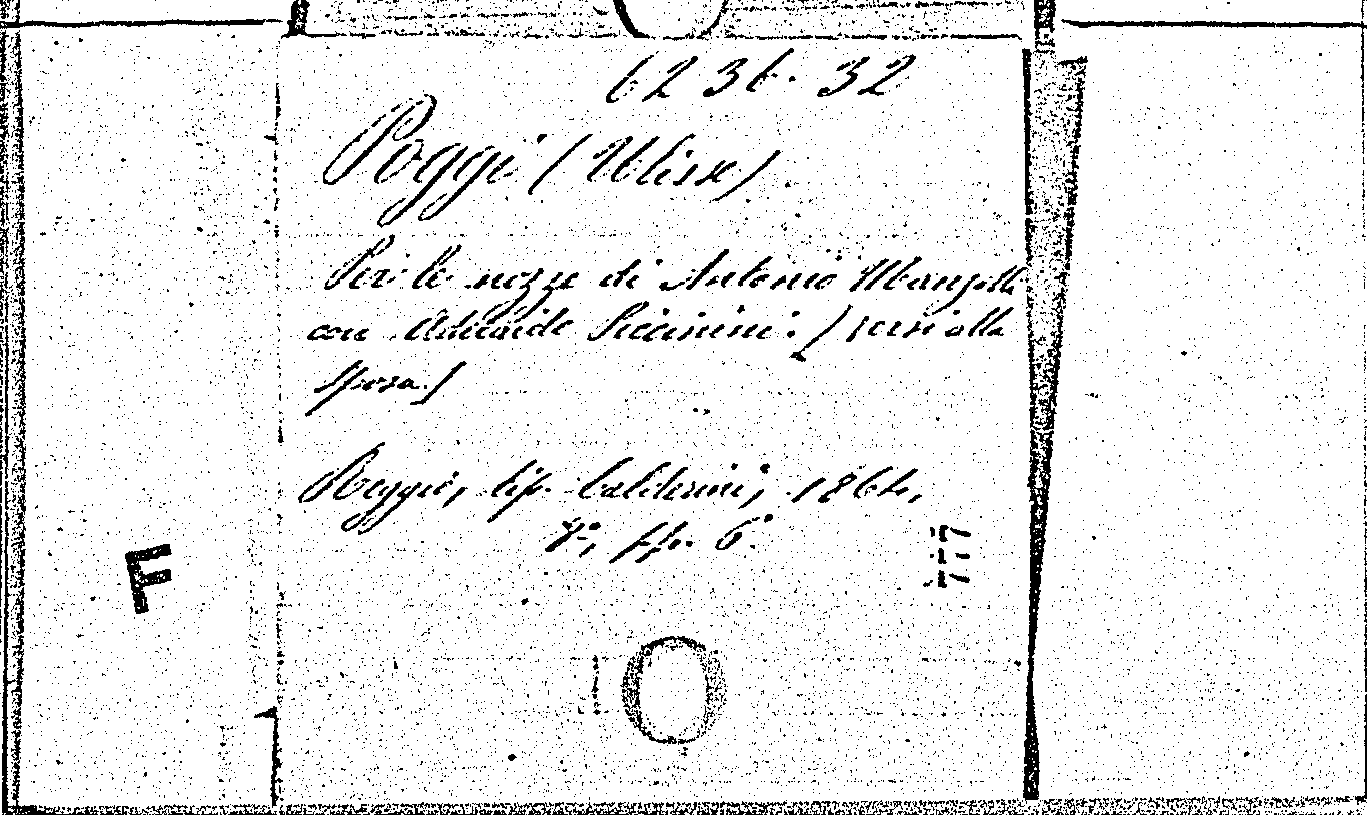 6236. 32
Poggi (Ulisse)
Per le nozze di Antonio Manzotti
con Adelaide Piccinini. [Versi alla
sposa.]
Reggio, tip. Calderini, 1864,
8°, pp. 6.
777
F